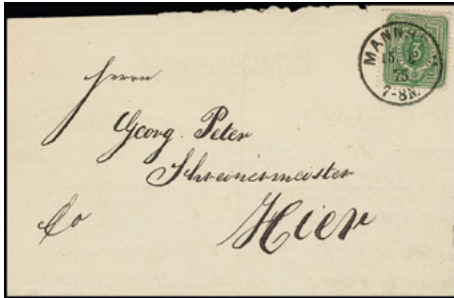 MANNHEIM
75
7-8N.
3
Herrn
Georg Peter
Schreinermeister
Hier